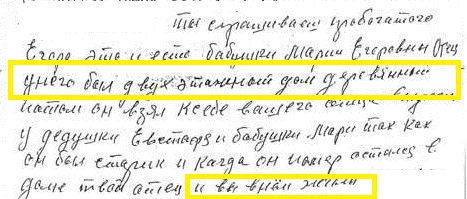 Ты спрашиваеш пробогатого
Егора это и есть бабушки Марии Егоровны Отец
унего был двух этажный дом деревянный
потом он взял ксебе вашего отца
у дедушки Евстафя и бабушки Мари так как
он был старик и кагда он помер остался в
доме твой отец и вы внём жили